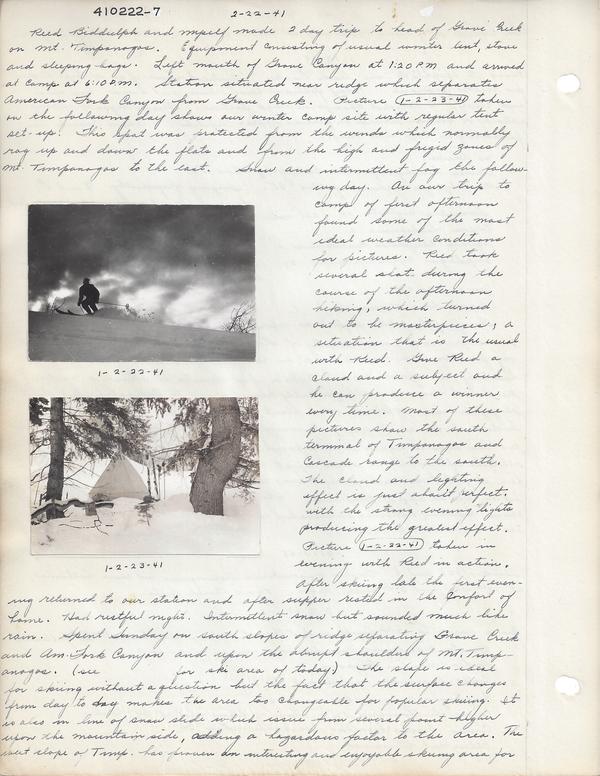 410222-7
2-22-41
Reed Biddulph and myself made 2 day trip to head of Grove Creek
on Mt. Timpanogos. Equipment consisting of usual winter tent, stove
and sleeping bags. Left mouth of Grove Canyon at 1:20 P.M and arrived
at camp at 6:10 P.M. Station situated near ridge which separates
American Fork Canyon from Grove Creek. Picture (1-2-23-41) taken
on the following day shows our winter camp site with regular tent
set-up. This spot was protected from the winds which normally
rag up and down the flats and from the high and frigid zones of
Mt. Timpanogos to the east. Snow and intermittent fog the follow-
ing day. On our trip to
camp of first afternoon
found some of the most
ideal weather conditions
for pictures. Reed took
several shots during the
course of the afternoon
hiking, which turned
out to be masterpieces; a
situation that is the usual
with Reed. Give Reed a
cloud and a subject and
he can produce a winner
every time. Most of these
pictures show the south
terminal of Timpanogos and
Cascade range to the south.
The cloud and lighting
effect is just about perfect.
with the strong evening lights
producing the greatest effect.
Picture (1-2-22-41) taken in
evening with Reed in action.
After skiing late the first even-
1-2-22-41
1-2-23-41
ing returned to our station and after supper rested in the comfort of
home. Had restful night. Intermittent snow but sounded much like
rain. Spent Sunday on south slopes of ridge separating Grove Creek
and Am. Fork Canyon and upon the abrupt shoulders of Mt. Timp-
anogos. (see for ski area of today.) The slope is ideal
for skiing without a question but the fact that the surface changes
from day to day makes the area too changeable for popular skiing. It
is also in line of snow slide which issue from several point higher
upon the mountain side, adding a hazardous factor to the area. The
west slope of Timp. has proven an interesting and enjoyable skiing area for